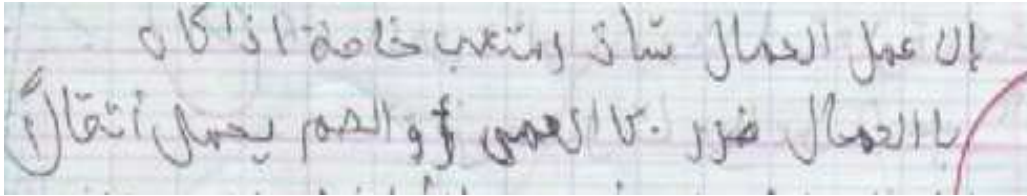 إن عمل العمال شاق ومتعب خاصة اذا كان
بالعمال ضرر كا العمى و الصم يحمل أثقالاً